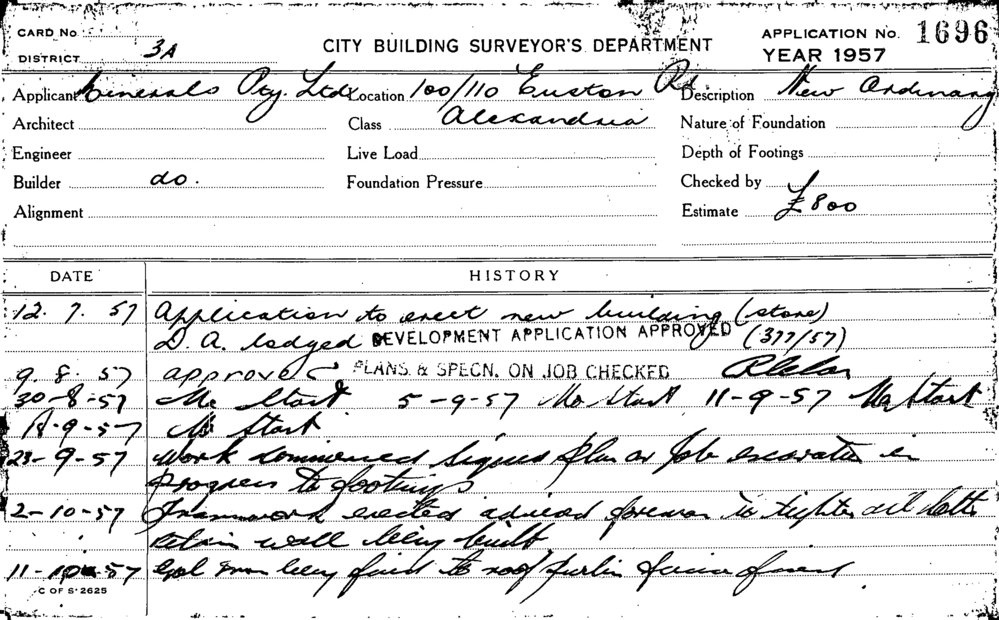 CARD No.
CITY BUILDING SURVEYOR'S DEPARTMENT
APPLICATION No. 1696
DISTRICT 3A
YEAR 1957
Applicant Minerals Pty. Ltd. Location 100/110 Euston Rd. Description New Ordinary
Architect Class Alexandria Nature of Foundation
Engineer Live Load Depth of Footings
Builder do. Foundation Pressure Checked by
Alignment Estimate £800
DATE HISTORY
12. 7. 57 Application to erect new building (store)
D. A. lodged DEVELOPMENT APPLICATION APPROVED (377/57)
9. 8. 57 approved PLANS & SPECN. ON JOB CHECKED
30-8-57 No Start 5-9-57 No Start 11-9-57 No Start
18-9-57 No Start
23-9-57 Work commenced Signed plan on Job excavation in
progress to footings
2-10-57 Framework erected advised foreman to tighten all bolts
retain wall being built
11-10-57 Gal iron being fixed to roof purlin
C OF S-2625